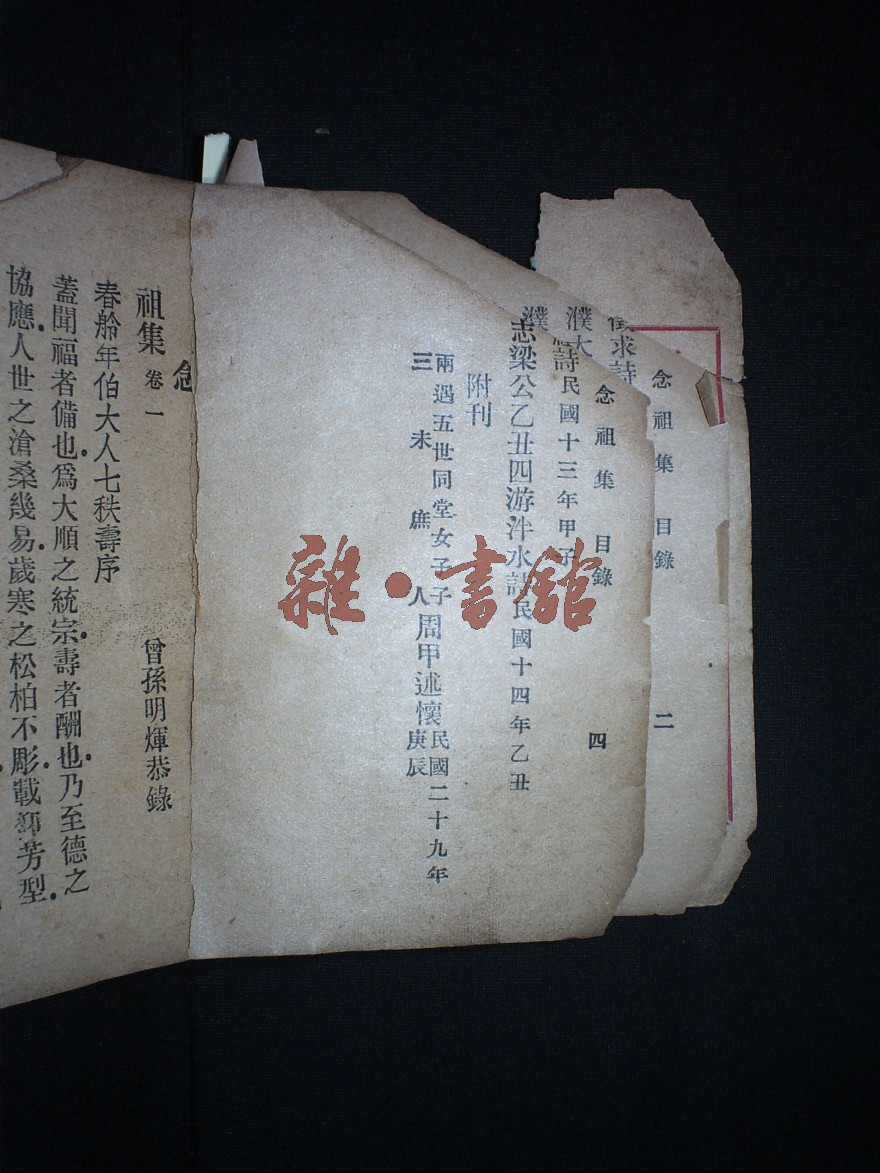 二
念祖集 目錄
徵求詩
四
念祖集 目錄
濮大
詩民國十三年甲子
濮
志梁公乙丑四游泮水詩民國十四年乙丑
附刊
兩遇五世同堂女子子
三未庶人
周甲述懷民國二十九年
庚辰
雜·書館
念
祖集 卷一
曾孫明煇恭錄
春舲年伯大人七秩壽序
蓋聞福者備也爲大順之統宗壽者酬也乃至德之
協應人世之滄桑幾易歲寒之松柏不彫載 芳型